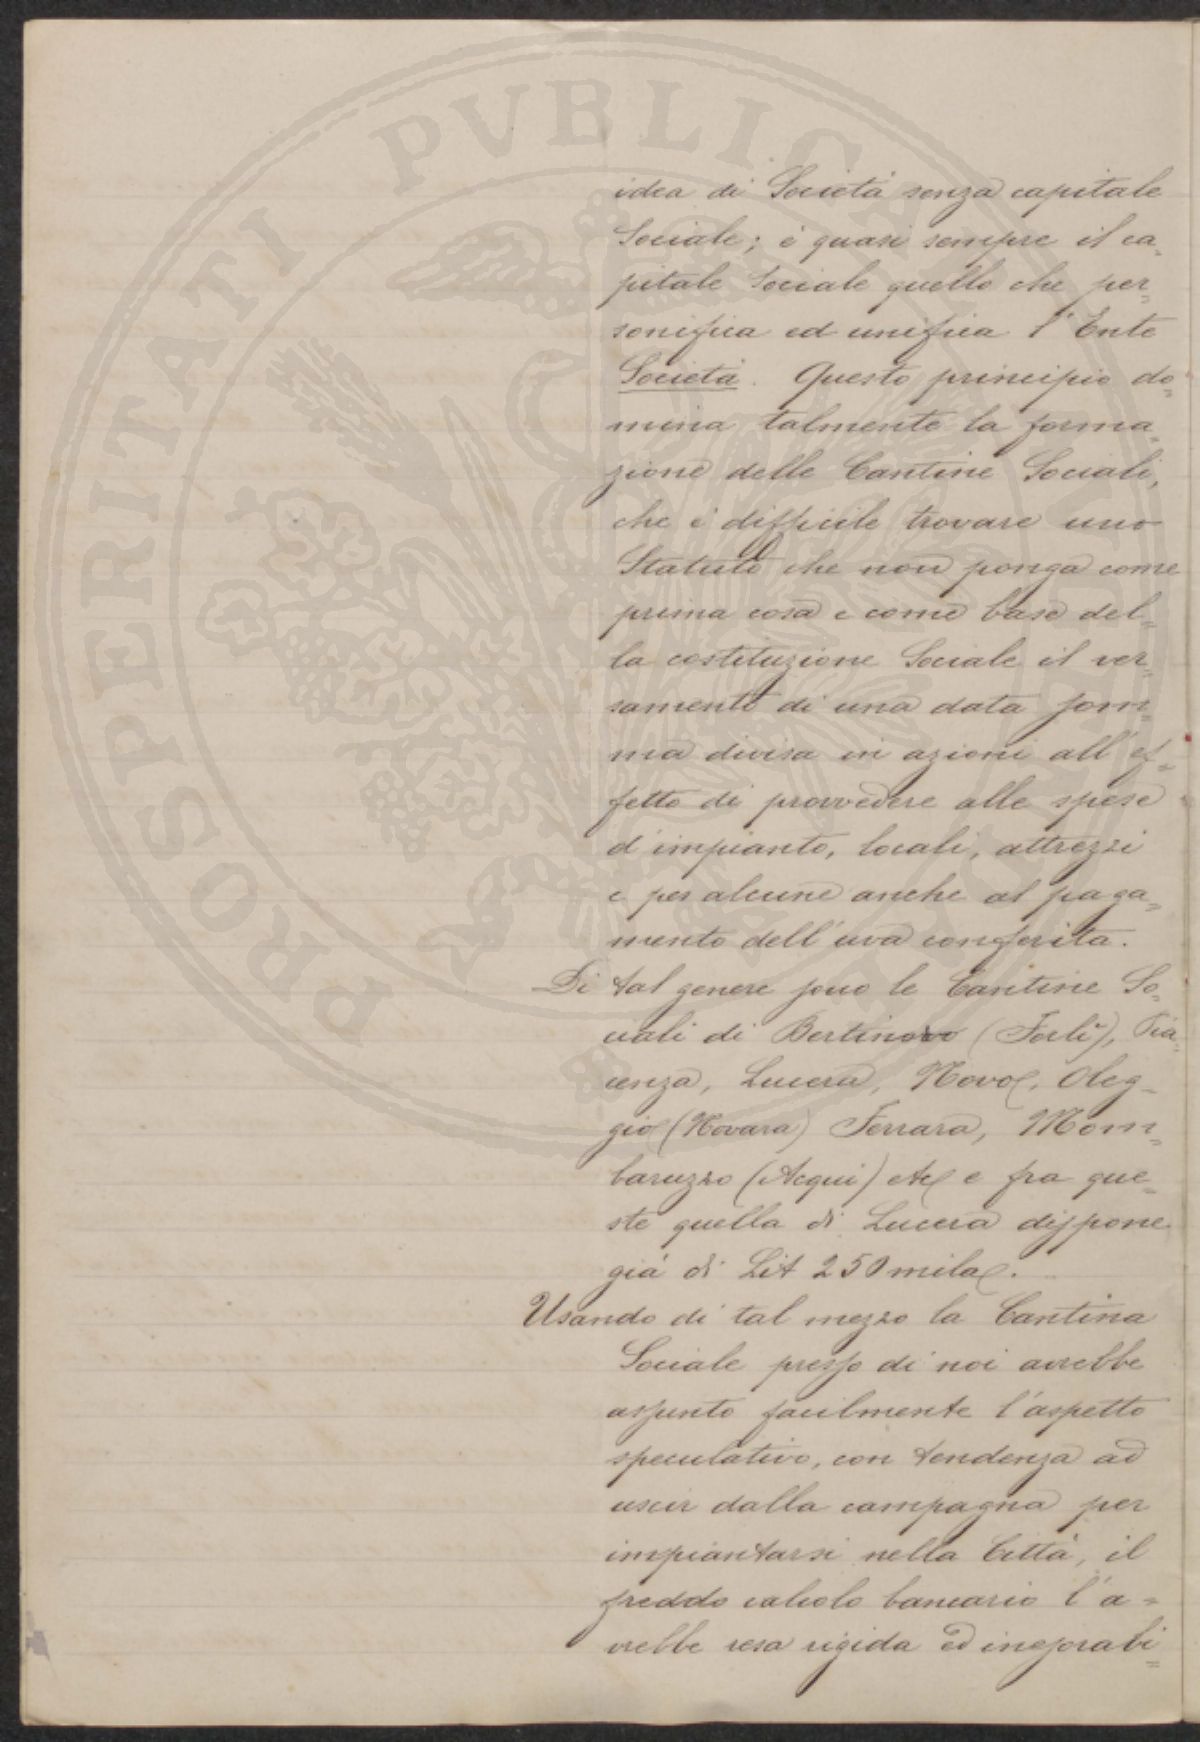 idea di Società senza capitale
Sociale; è quasi sempre il ca=
pitale Sociale quello che per=
sonifica ed unifica l'Ente
Società. Questo principio do=
mina talmente la forma=
zione delle Cantine Sociali,
che è difficile trovare uno
Statuto che non ponga come
prima cosa e come base del=
la costituzione Sociale il ver=
samento di una data som=
ma divisa in azioni all'ef=
fetto di provvedere alle spese
d'impianto, locali, attrezzi
e per alcune anche al paga=
mento dell'uva conferita.
Di tal genere sono le Cantine So=
ciali di Bertinoro (Forlì), Pia=
cenza, Lucera, Novo, Oleg=
gio (Novara) Ferrara, Mom=
baruzzo (Acqui) etc e fra que=
ste quella di Lucera dispone
già di Lit 250 mila.
Usando di tal mezzo la Cantina
Sociale presso di noi avrebbe
assunto facilmente l'aspetto
speculativo, con tendenza ad
uscir dalla campagna per
impiantarsi nella Città, il
freddo calcolo bancario l'a=
vrebbe resa rigida ed inesorabi=
PROSPERITATI PVBLICAE